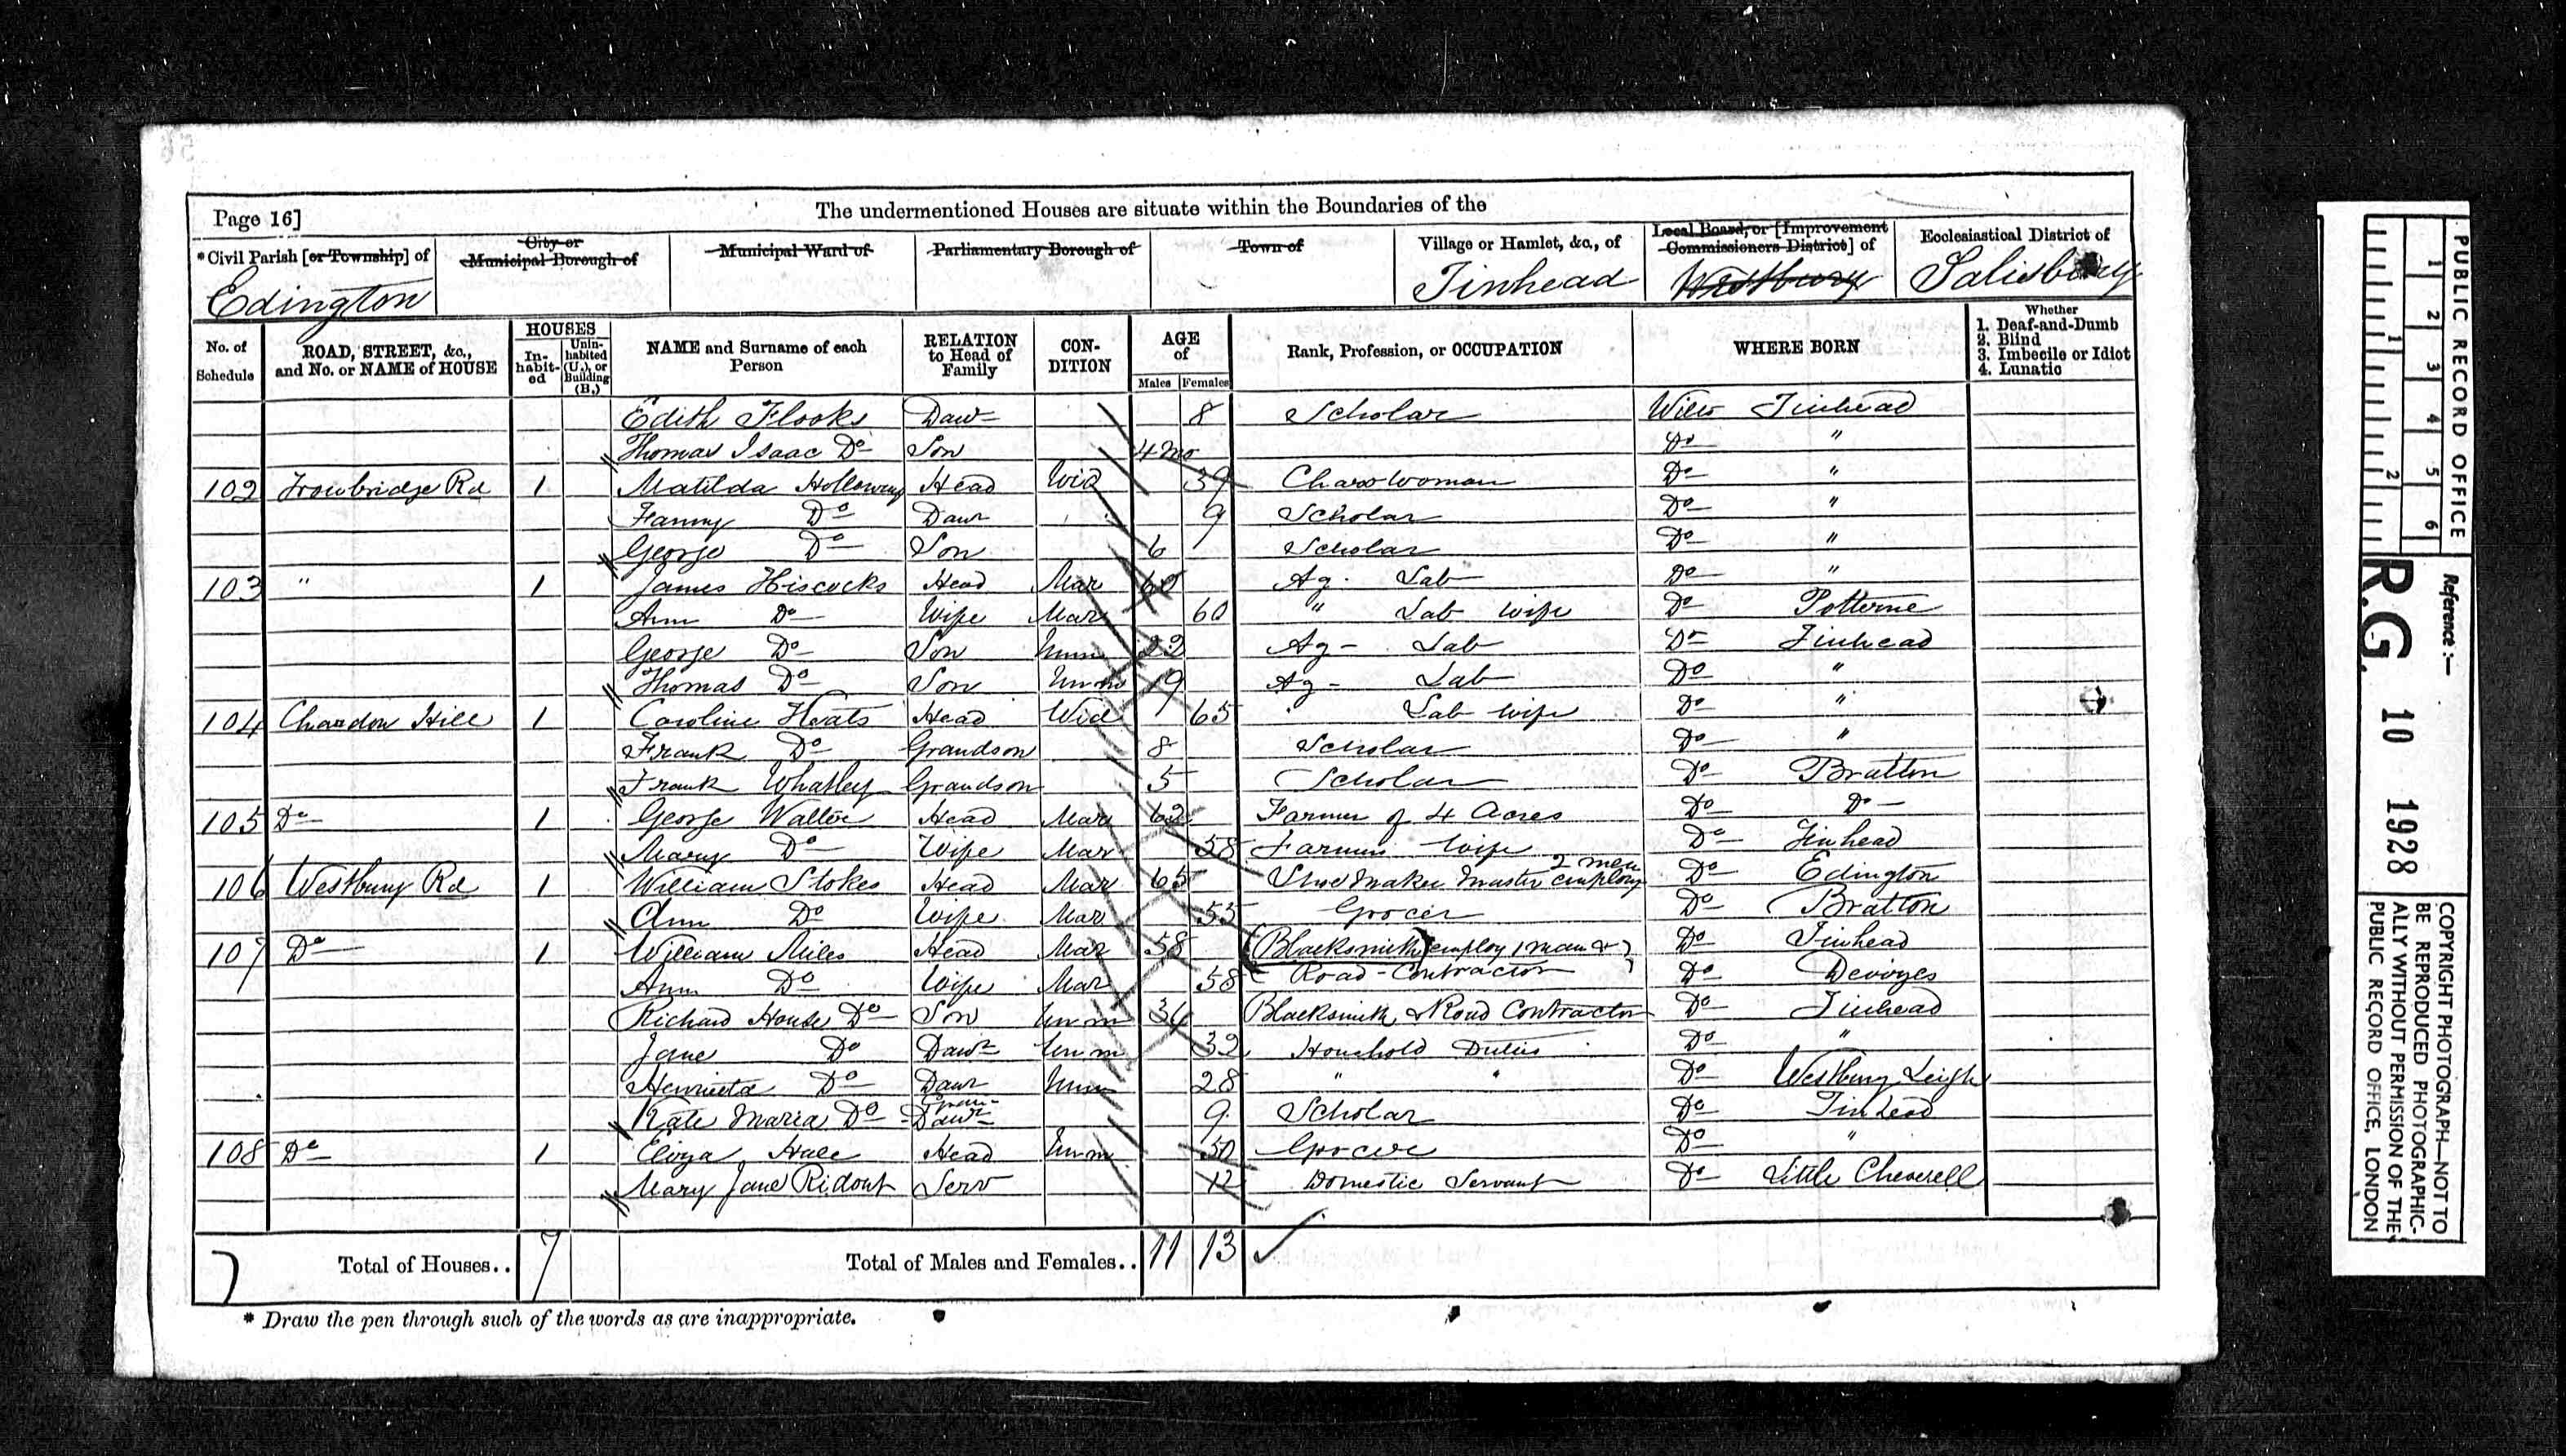 Page 16]
The undermentioned Houses are situate within the Boundaries of the
*Civil Parish [or Township] of
City or Municipal Borough of
Municipal Ward of
Parliamentary Borough of
Town of
Village or Hamlet, &c., of
Local Board, or [Improvement Commissioners District] of
Ecclesiastical District of
Edington Tinhead Westbury Salisbury
No. of Schedule
ROAD, STREET, &c., and No. or NAME of HOUSE
HOUSES
Inhabited
Uninhabited (U.), or Building (B.)
NAME and Surname of each Person
RELATION to Head of Family
CONDITION
AGE of
Males Females
Rank, Profession, or OCCUPATION
WHERE BORN
Whether
1. Deaf-and-Dumb
2. Blind
3. Imbecile or Idiot
4. Lunatic
Edith Flooks Daur 8 Scholar Wilts Tinhead
Thomas Isaac Do Son 4 mo Do "
102 Trowbridge Rd 1 Matilda Holloway Head Wid 39 Charwoman Do "
Fanny Do Daur 9 Scholar Do "
George Do Son 6 Scholar Do "
103 " 1 James Hiscocks Head Mar 60 Ag. Lab Do "
Ann Do Wife Mar 60 " Lab wife Do Potterne
George Do Son Unm 22 Ag - Lab Do Tinhead
Thomas Do Son Unm 19 Ag - Lab Do "
104 Hill 1 Caroline Head Wid 65 Lab wife Do "
Frank Do Grandson 8 Scholar Do "
Frank Whatley Grandson 5 Scholar Do Bratton
105 Do 1 George Walter Head Mar 62 Farmer of 4 Acres Do Do
Mary Do Wife Mar 58 Farmers Wife Do Tinhead
106 Westbury Rd 1 William Stokes Head Mar 65 Shoe Maker Master employ 2 men Do Edington
Ann Do Wife Mar 53 Grocer Do Bratton
107 Do 1 William Miles Head Mar 58 Blacksmith employ 1 man & Do Tinhead
Ann Do Wife Mar 58 Road-Contractor Do Devizes
Richard House Do Son Unm 34 Blacksmith & Road Contractor Do Tinhead
Jane Do Daur Unm 32 Household Duties Do "
Henrietta Do Daur Unm 28 " " Do Westbury Leigh
Kate Maria Do Gran-Daur 9 Scholar Do Tinhead
108 Do 1 Head Unm 50 Grocer Do "
Mary Jane Ridout Serv 12 Domestic Servant Do Little Cheverell
7 Total of Houses.. 7 Total of Males and Females.. 11 13
* Draw the pen through such of the words as are inappropriate.
PUBLIC RECORD OFFICE
1 2 3 4 5 6
1 2
Reference :—
R.G. 10 1928
COPYRIGHT PHOTOGRAPH—NOT TO
BE REPRODUCED PHOTOGRAPHIC-
ALLY WITHOUT PERMISSION OF THE
PUBLIC RECORD OFFICE, LONDON